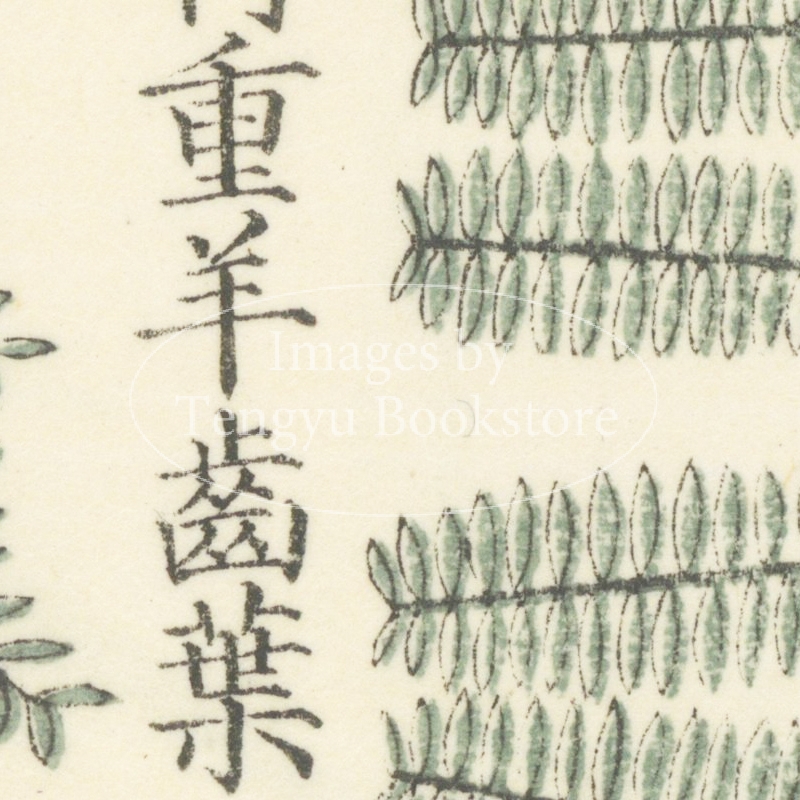 重羊齒葉
Images by
Tengyu Bookstore